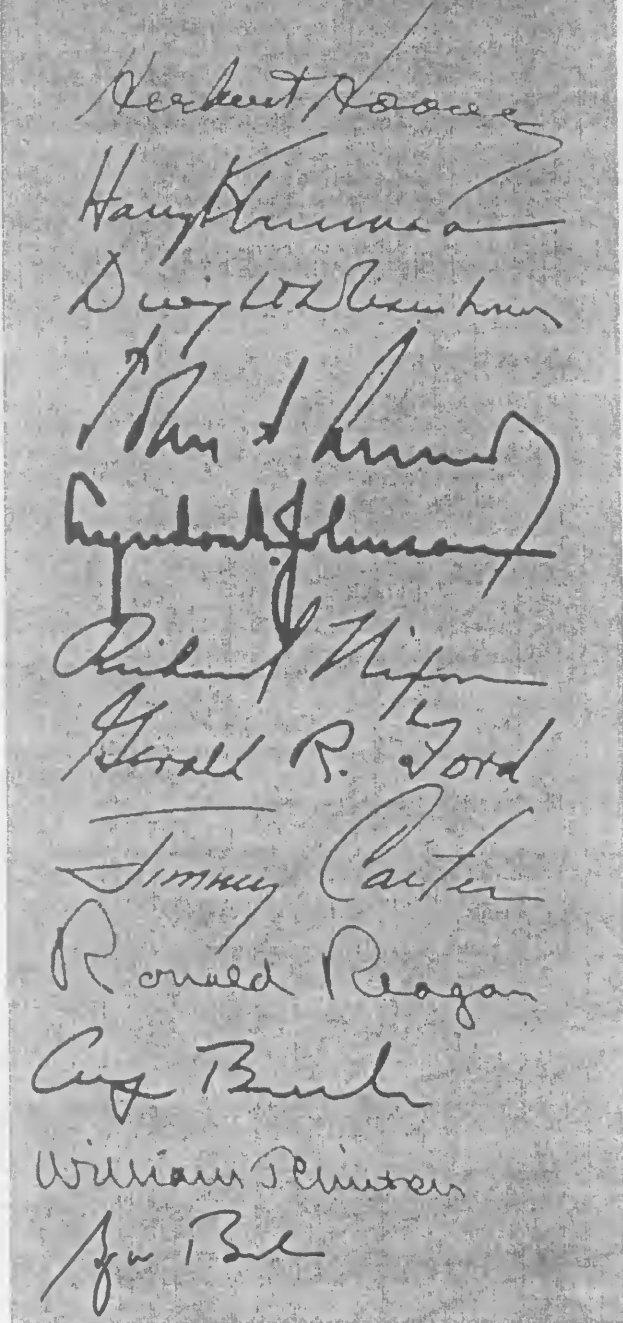 Herbert Hoover
Harry S Truman
Dwight D Eisenhower
John F Kennedy
Lyndon B. Johnson
Richard Nixon
Gerald R. Ford
Jimmy Carter
Ronald Reagan
George Bush
William J Clinton
George W Bush